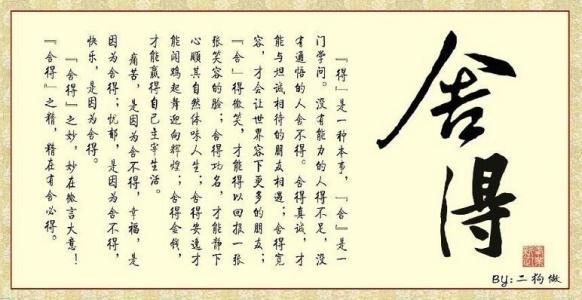 舍得
『得』是一种本事，『舍』是一
门学问。没有能力的人得不足，没
有通悟的人舍不得。舍得真诚，才
能与坦诚相待的朋友相遇；舍得宽
容，才会让世界容下更多的朋友；
『舍』得微笑，才能得以回报一张
张笑容的脸；舍得功名，才能静下
心顺其自然体味人生；舍得安逸才
能闻鸡起舞迎向辉煌；舍得金钱，
才能赢得自己主宰生活。
痛苦，是因为舍不得，幸福，是
因为舍得；忧郁，是因为舍不得，
快乐，是因为舍得。
『舍得』之妙，妙在微言大意！
『舍得』之精，精在有舍必得。
BY:二狗做